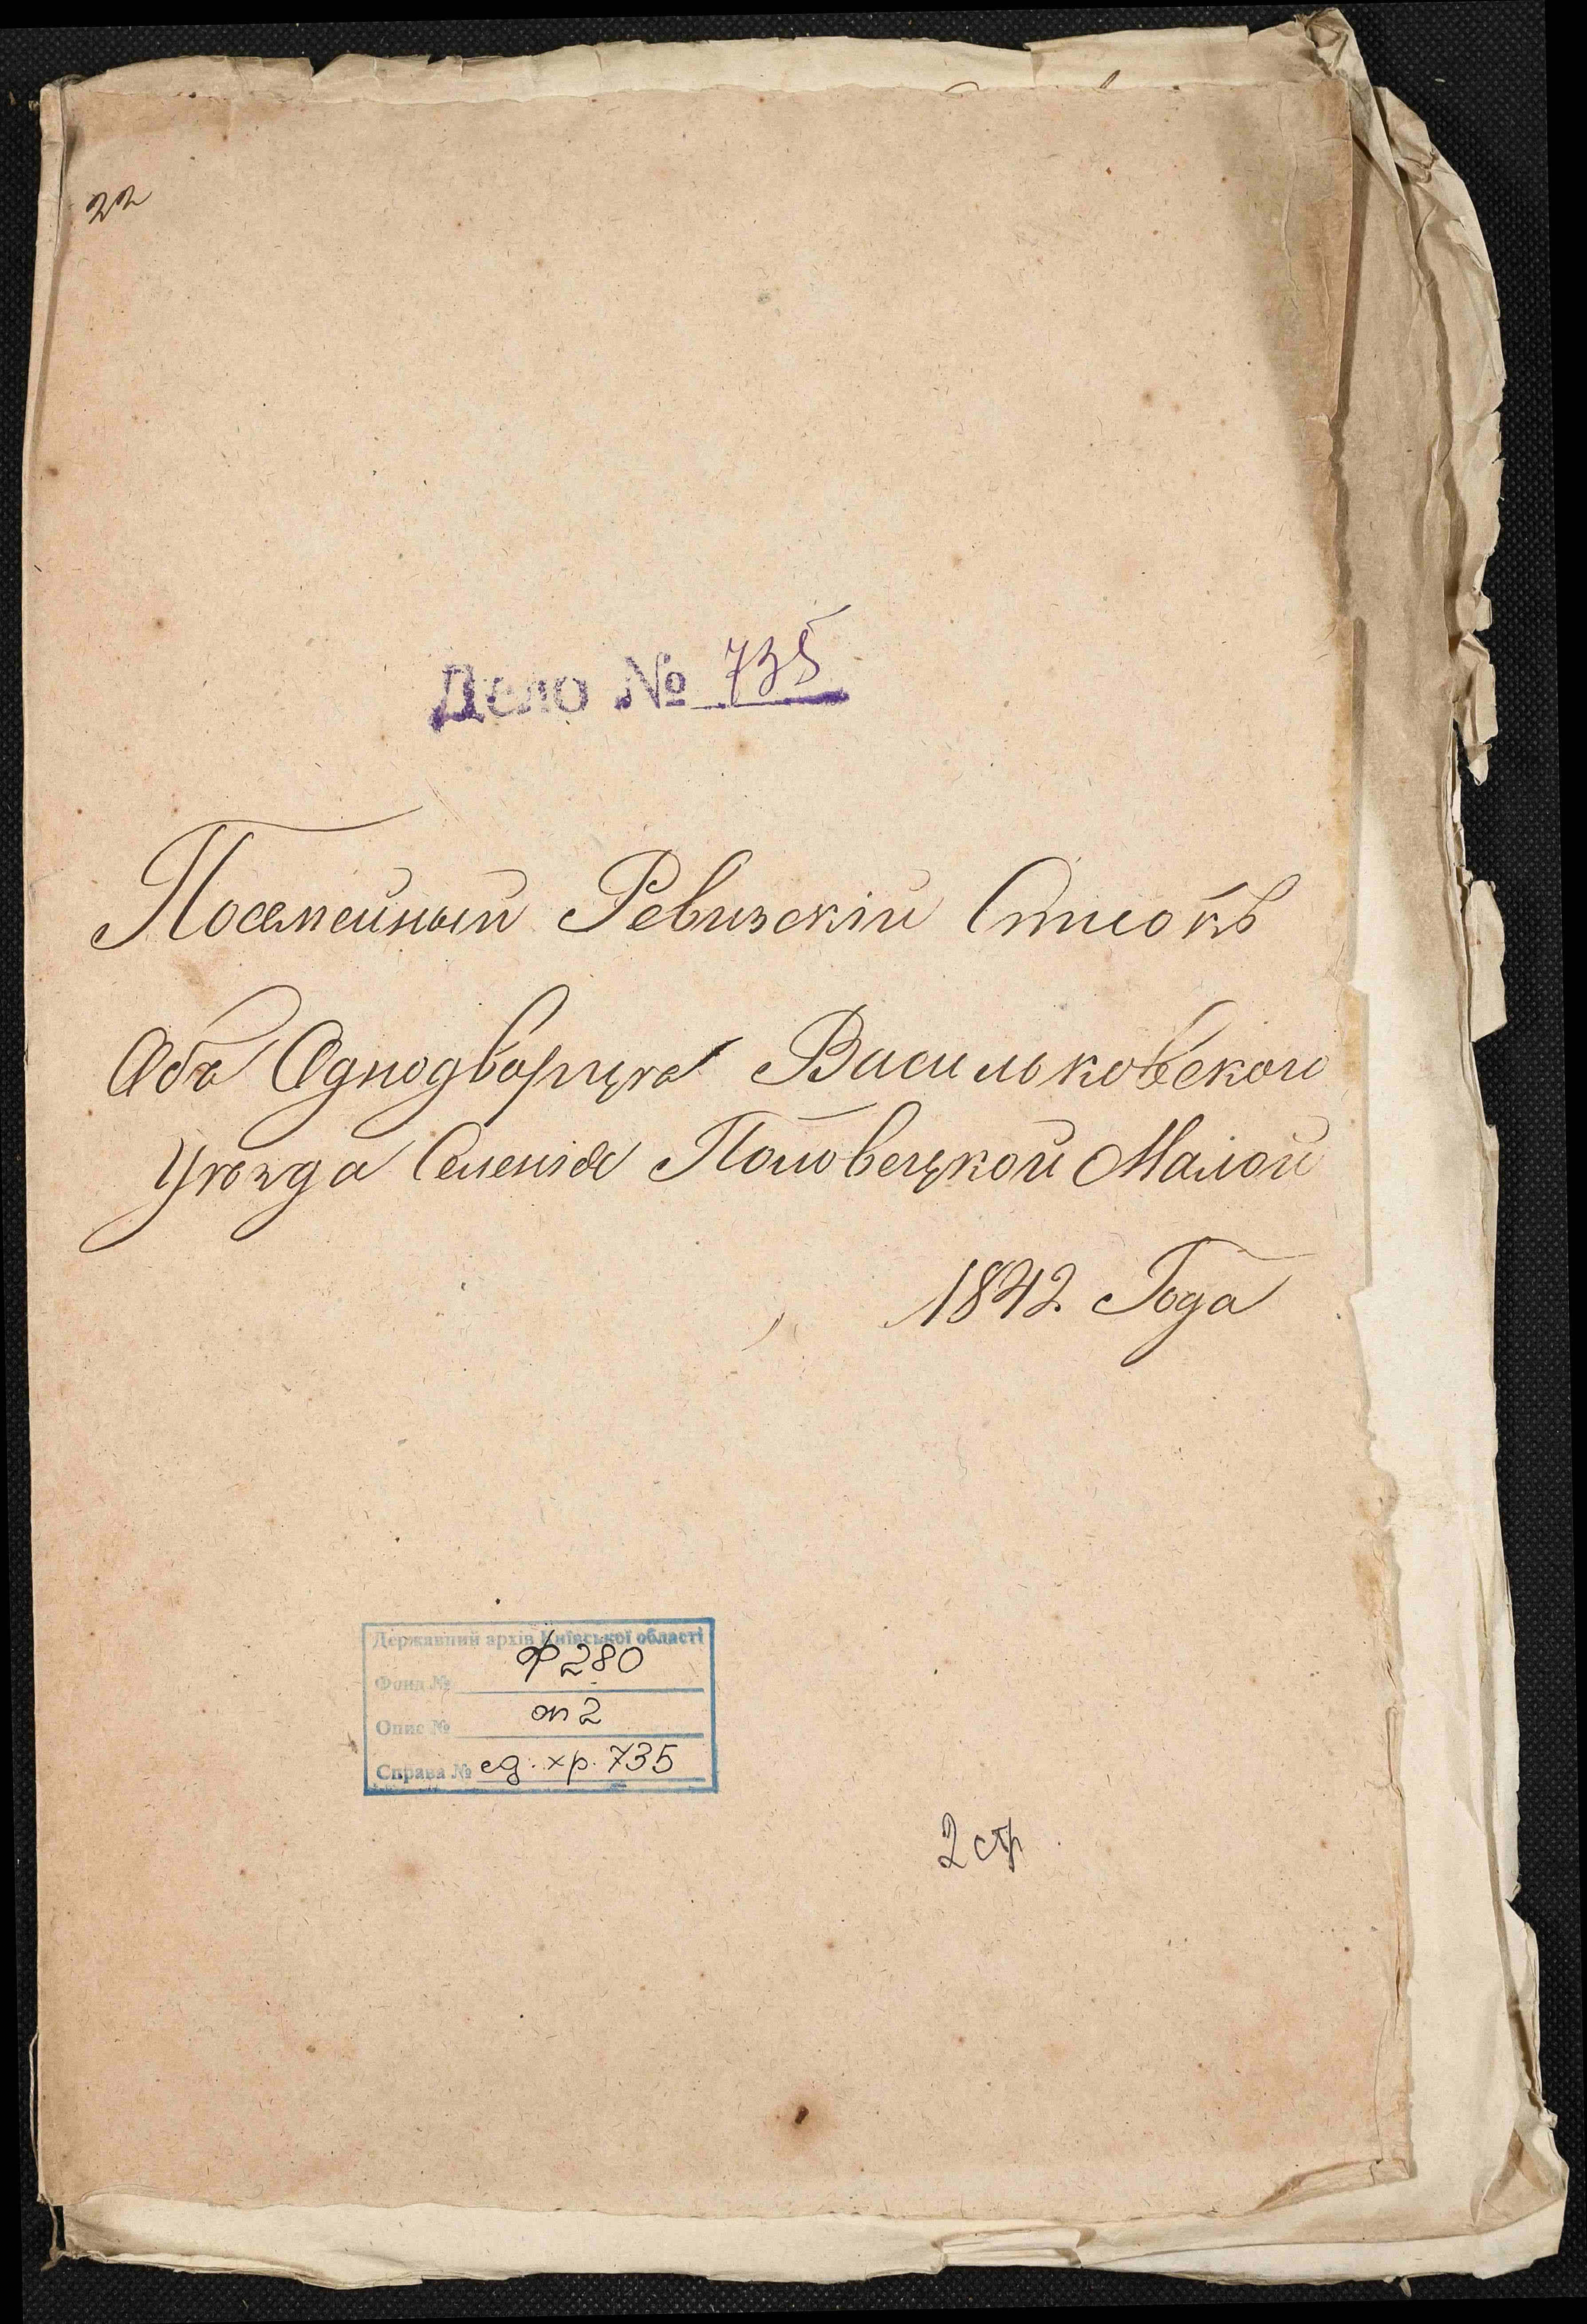 22
Дело № 735
Посемейный Ревизскій Списокъ
Объ Однодворцахъ Васильковского
Уѣзда Селенія Половецкой Малой
1842 Года
Державний архів Київської області
Фонд № Ф 280
Опис № оп 2
Справа № ед. хр. 735
2 стр.